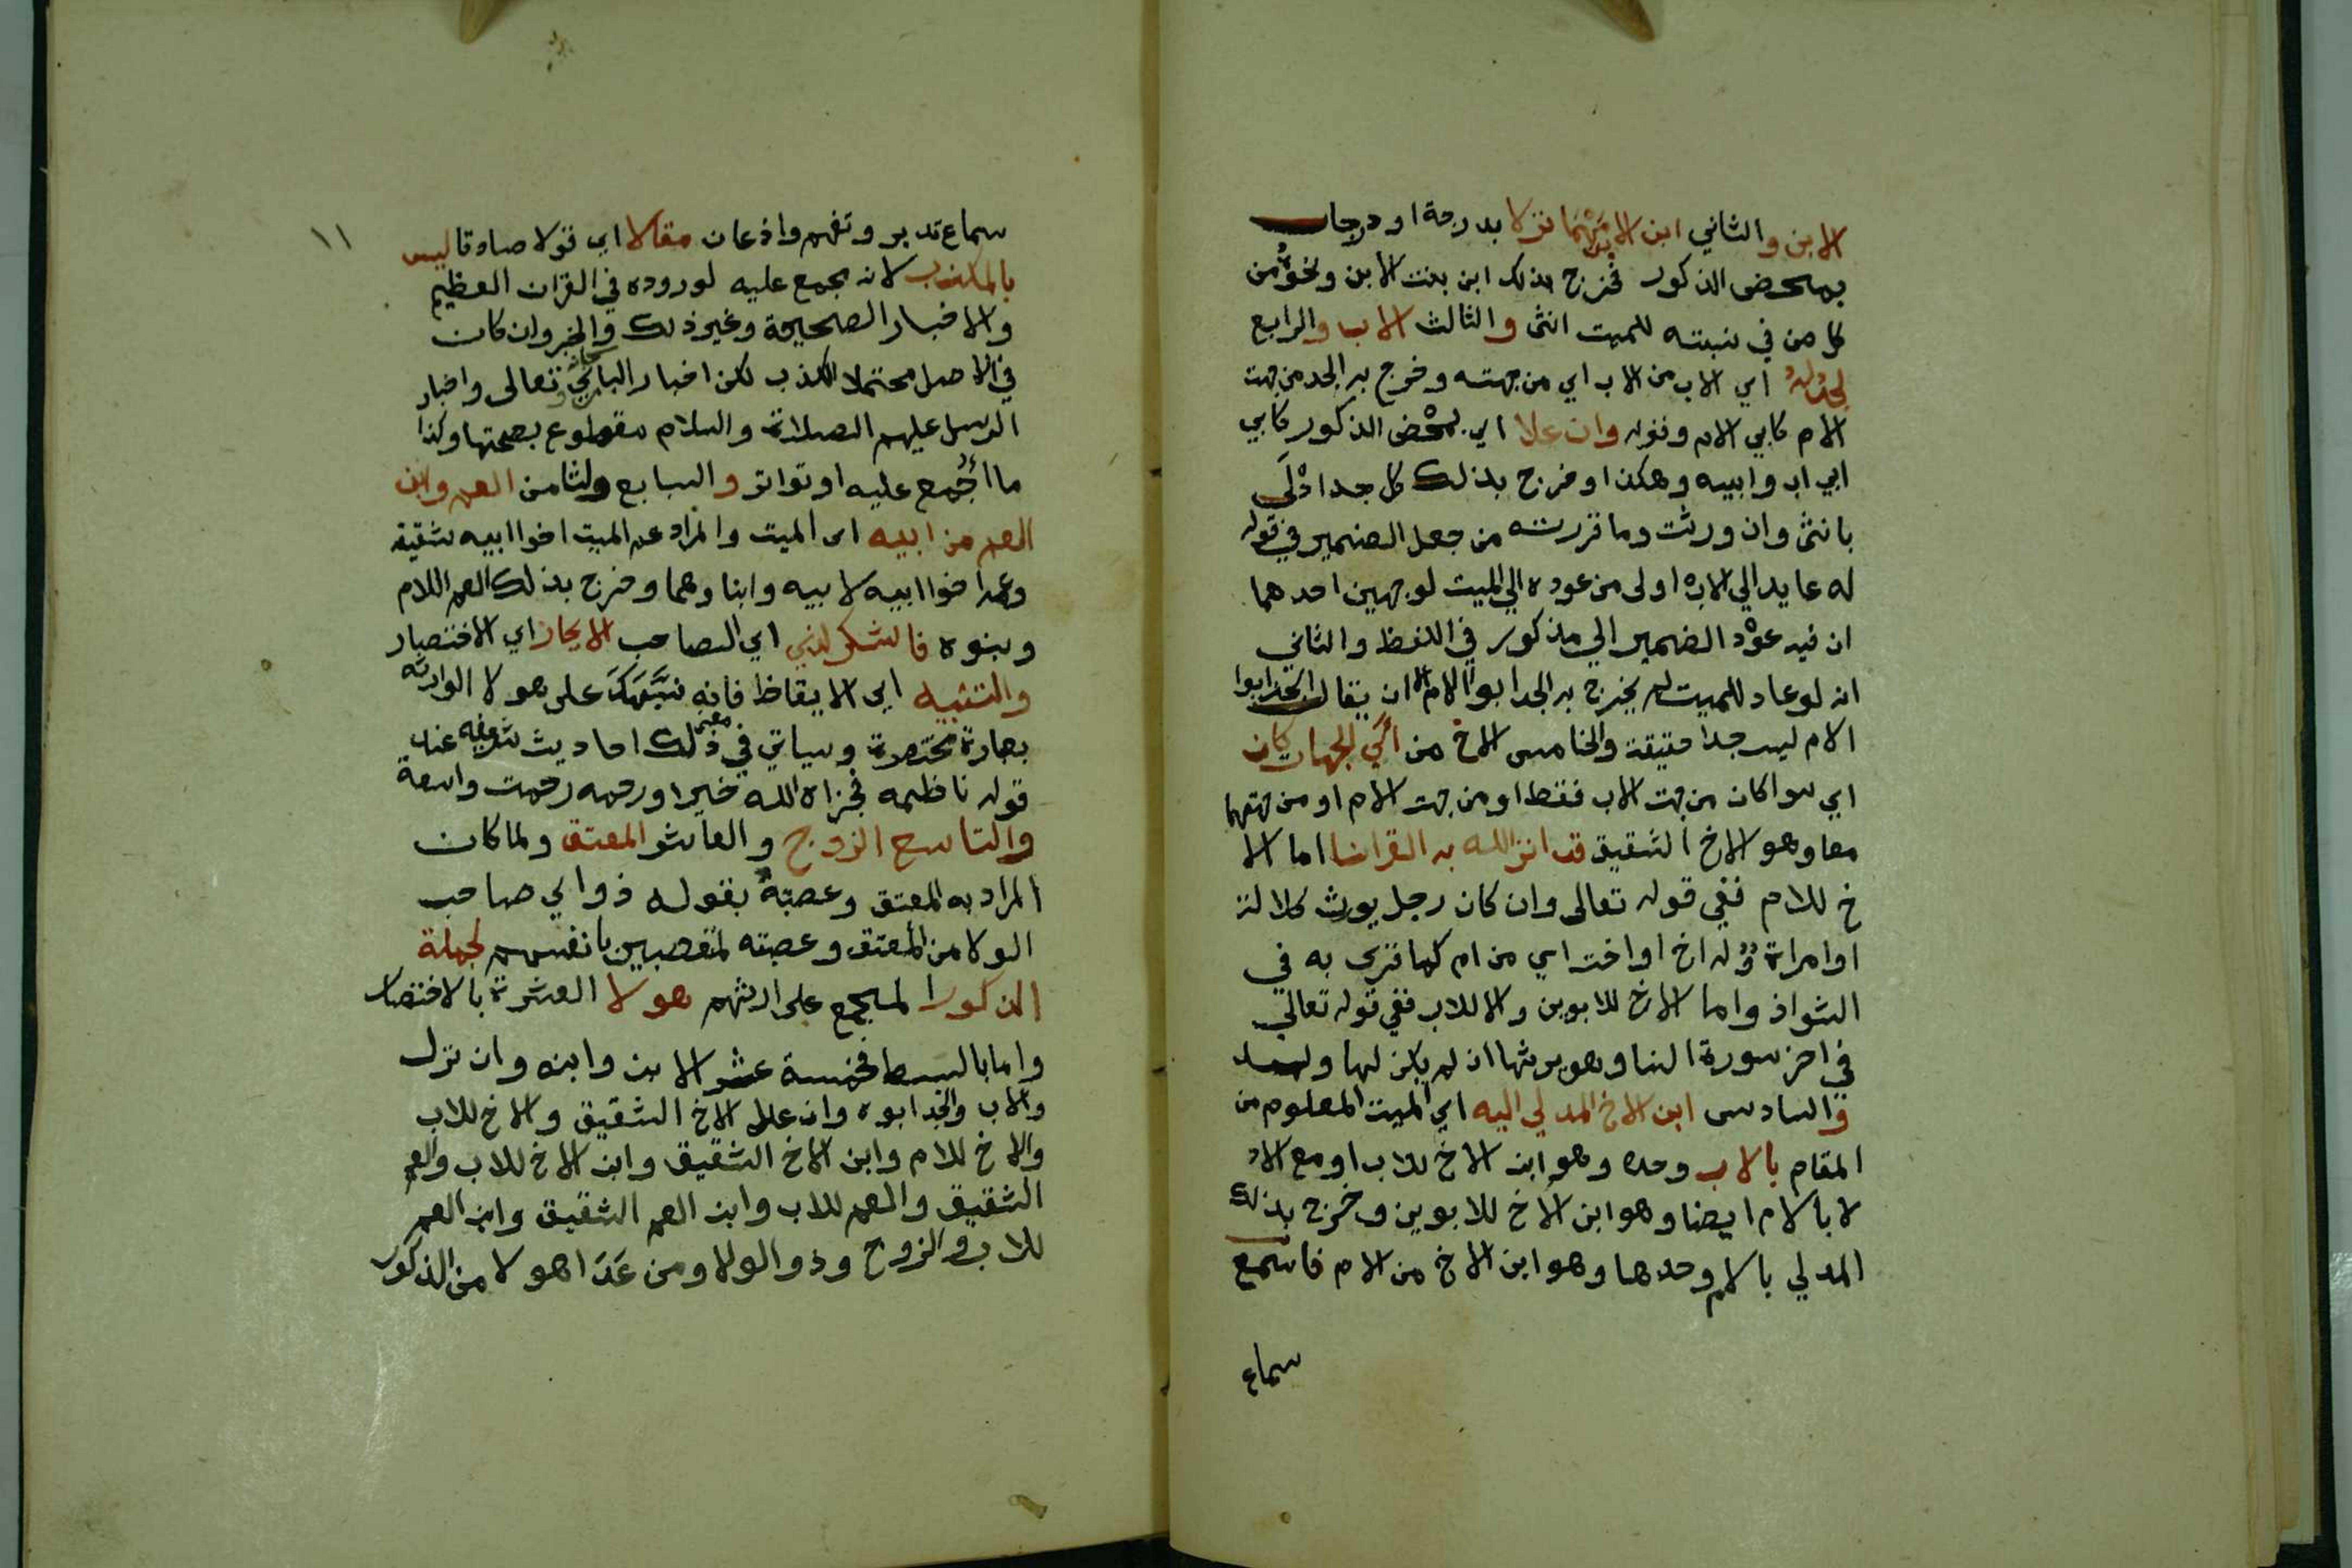 الابن والثاني ابن الابن مهما نزلا بدرجة او درجات
بمحض الذكور فخرج بذلك ابن بنت الابن ونحوه من
كل من في نسبته للميت انثى والثالث الاب والرابع
الجد له اي الاب من الاب اي من جهته وخرج به الجد من جهت
الام كابي الام وقوله وان علا اي بمحض الذكور كابي
ابي اب وابيه وهكذا وخرج بذلك كل جد ادلى
بانثى وان ورثت وما قررته من جعل الضمير في قوله
له عايد الي الاب اولى من عوده الي الميت لوجهين احدهما
ان فيه عود الضمير الي مذكور في اللفظ والثاني
انه لو عاد للميت لم يخرج به الجد ابو الام الا ان يقال الجد ابوا
الام ليس جدا حقيقة والخامس الاخ من اي الجهات كان
اي سوا كان من جهت الاب فقط او من جهت الام او من جهتهما
معا وهو الاخ الشقيق قد انزل الله به القرانا اما الا
خ للام ففي قوله تعالى وان كان رجل يورث كلالة
او امراة وله اخ او اخت اي من ام كما قري به في
الشواذ واما الاخ للابوين والا للاب ففي قوله تعالي
في اخر سورة النسا وهو يرثها ان لم يكن لها ولد
والسادس ابن الاخ المدلي اليه اي الميت المعلوم من
المقام بالاب وحده وهو ابن الاخ للاب او مع الاد
لا بالام ايضا وهو ابن الاخ للابوين وخرج بذلك
المدلي بالام وحدها وهو ابن الاخ من الام فاسمع
سماع
١١
سماع تدبر وتفهم واذعان مقالا اي قولا صادقا ليس
بالمكذب لانه مجمع عليه لوروده في القران العظيم
والاخبار الصحيحة وغير ذلك والخبر وان كان
في الاصل محتملا للكذب لكن اخبار الباري تعالى واخبار
الرسل عليهم الصلاة والسلام مقطوع بصحتها وكذا
ما اجمع عليه او تواتر والسابع والثامن العم وابن
العم من ابيه اى الميت والمراد عم الميت اخوا ابيه شقيقه
وعم اخوا ابيه لابيه وابناوهما وخرج بذلك العم اللام
وبنوه فاشكر لذي اي الصاحب الايجاز اي الاختصار
والتنبيه اي الايقاظ فانه نبهك على هولا الوارثه
بعبارة مختصرة وسياتي في ذلك احاديث شريفه عند
قول ناظمه فجزاه الله خيرا ورحمه رحمت واسعة
والتاسع الزوج والعاشر المعتق ولما كان
المراد به المعتق وعصبته بقوله ذوا لي صاحب
الولا من المعتق وعصبته لتعصبين بانفسهم لجملة
الذكور المجمع على ارثهم هولا العشرة بالاختصار
واما بالبسط فخمسة عشر الابن وابنه وان نزل
والاب والجد ابوه وان علا الاخ الشقيق والاخ للاب
والاخ للام وابن الاخ الشقيق وابن الاخ للاب والعم
الشقيق والعم للاب وابن العم الشقيق وابن العم
للاب والزوج وذو الولا ومن عدا هولا من الذكور